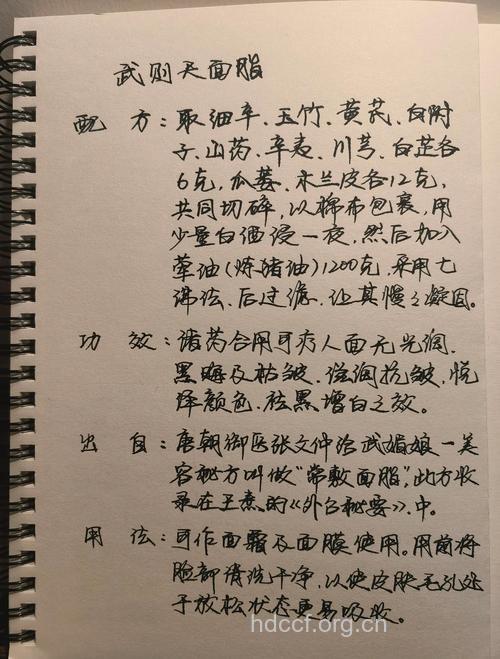 武则天面脂
配 方：取细辛、玉竹、黄芪、白附
子、山药、辛夷、川芎、白芷各
6克，瓜蒌、木兰皮各12克，
共同切碎，以棉布包裹，用
少量白酒浸一夜，然后加入
荤油（炼猪油）1200克，采用七
沸法，后过滤，让其慢慢凝固。
功 效：诸药合用可疗人面无光润，
黑晦及枯皱，滋润抗皱，悦
泽颜色，祛黑增白之效。
出 自：唐朝御医张文仲给武媚娘一美
容秘方叫做“常敷面脂”，此方收
录在王焘的《外台秘要》中。
用 法：可作面霜及面膜使用。用前将
脸部清洗干净，以使皮肤毛孔处
于放松状态更易吸收。
hdccf.org.cn